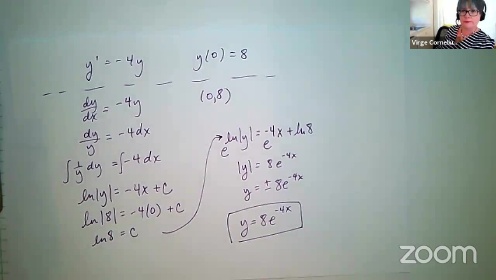 y' = -4y    y(0) = 8
dy/dx = -4y    (0,8)
dy/y = -4dx
∫ 1/y dy = ∫ -4dx
ln|y| = -4x + C
ln|8| = -4(0) + C
ln 8 = C
e^(ln|y|) = e^(-4x + ln 8)
|y| = 8e^(-4x)
y = ± 8e^(-4x)
y = 8e^(-4x)
zoom